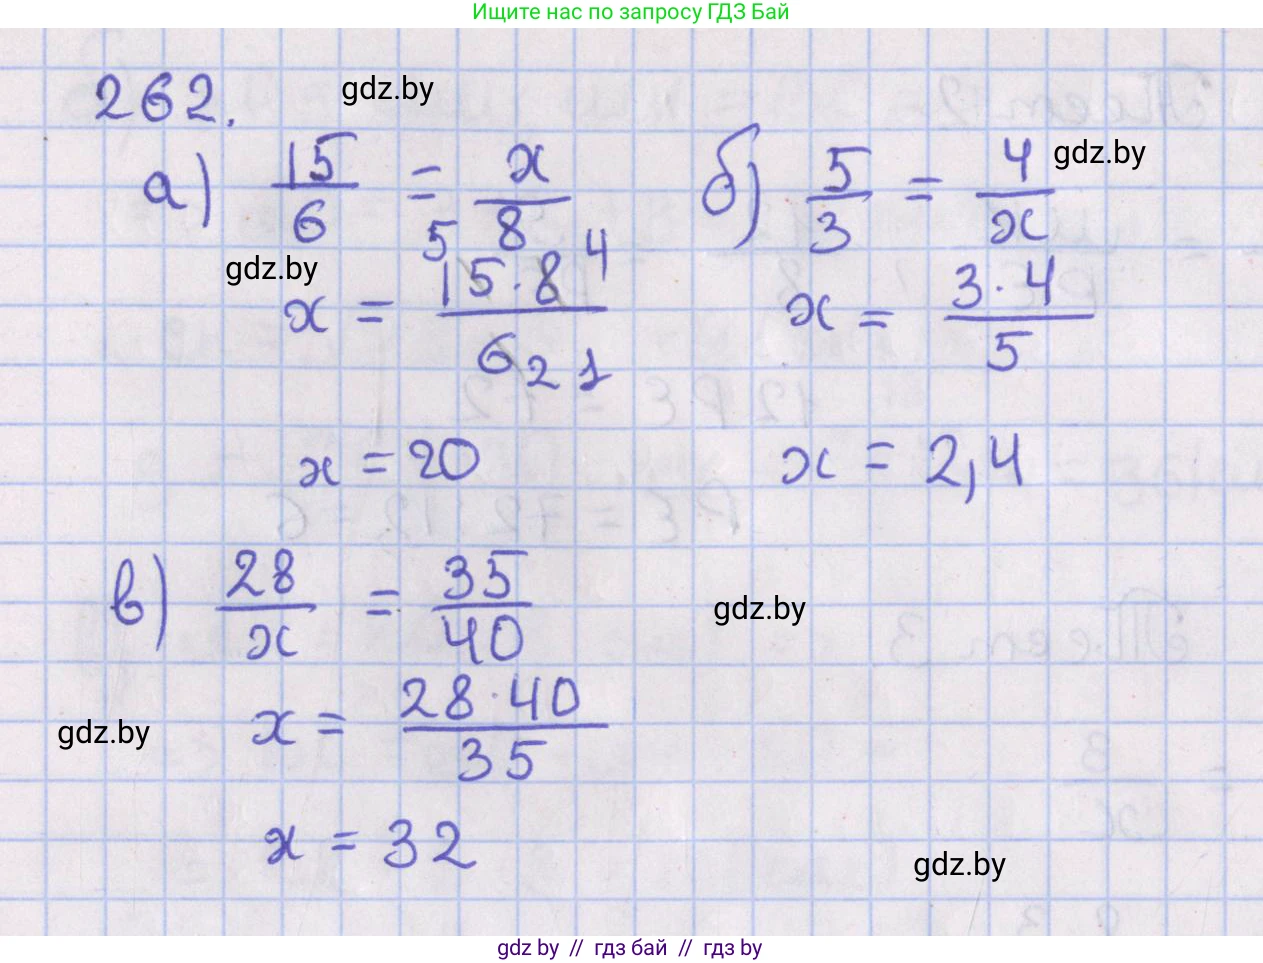 Ищите нас по запросу ГДЗ Бай
262.
gdz.by
а) 15/6 = x/8
б) 5/3 = 4/x
gdz.by
gdz.by
x = 15·8/6 5 4 2 1
x = 3·4/5
x = 20
x = 2,4
в) 28/x = 35/40
gdz.by
x = 28·40/35
gdz.by
x = 32
gdz.by
gdz by // гдз бай // гдз by